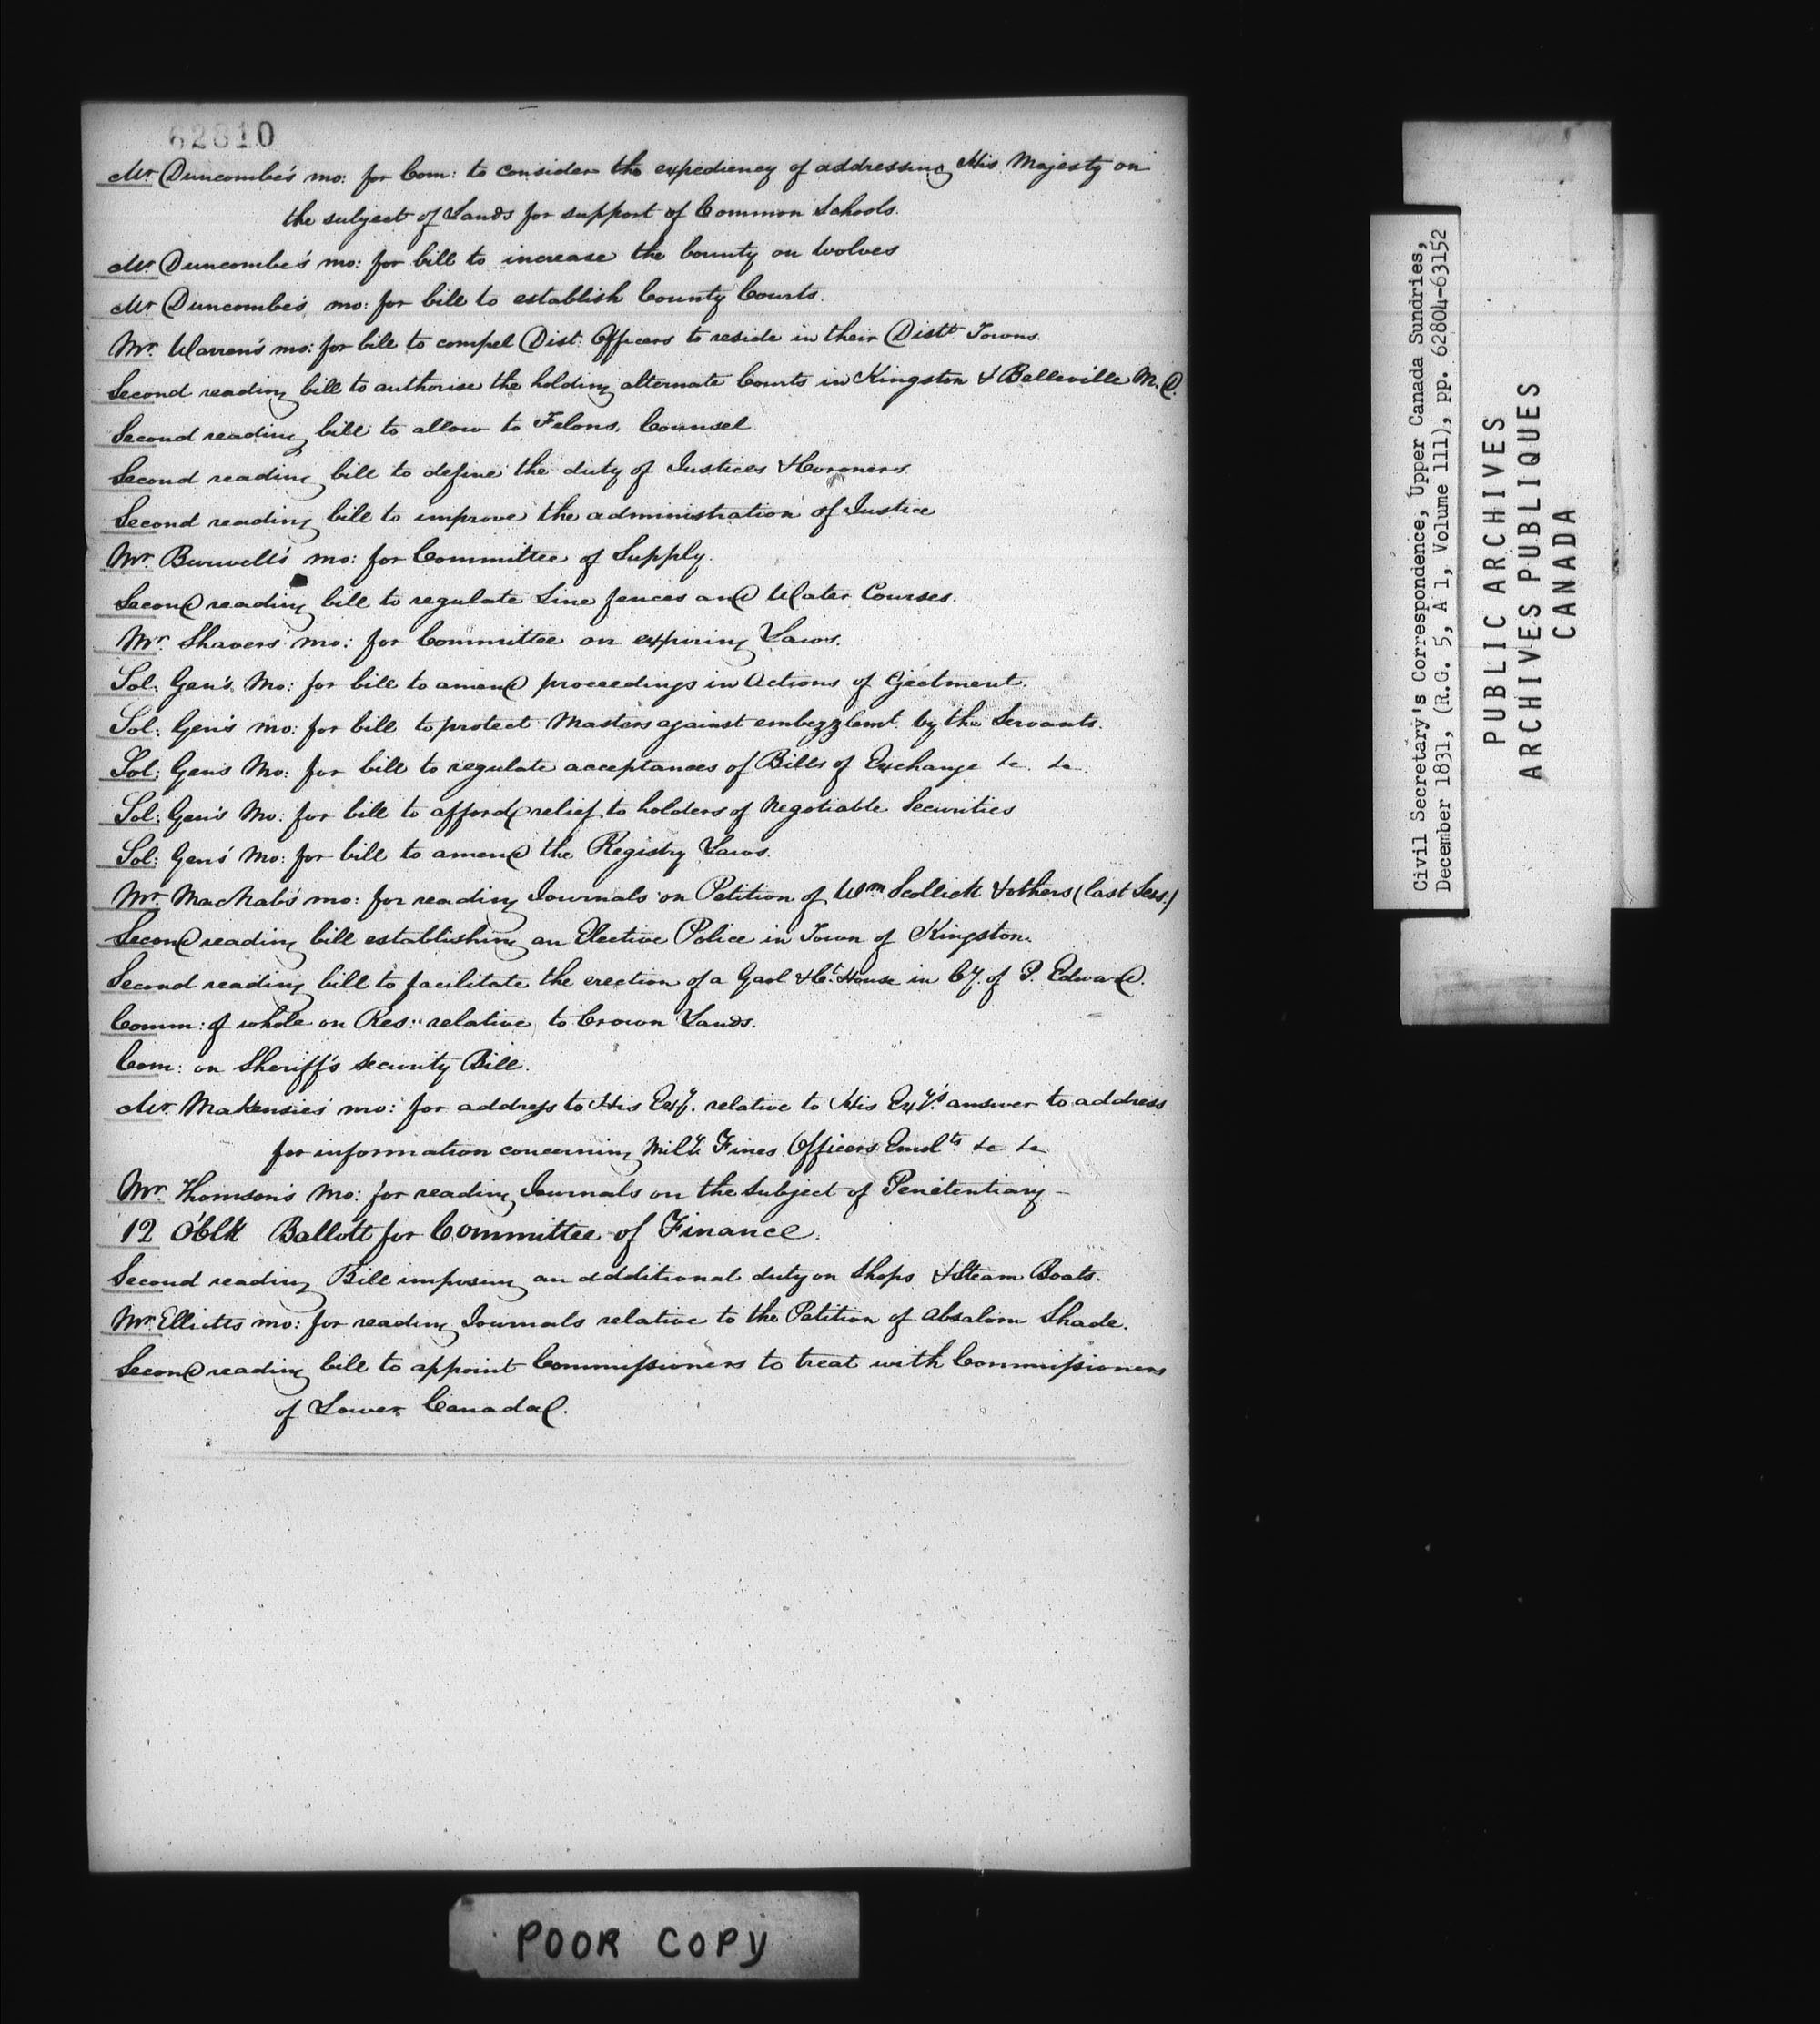 62810
Mr Duncombe's mo: for Com: to consider the expediency of addressing His Majesty on
the subject of Lands for support of Common Schools.
Mr Duncombe's mo: for bill to increase the bounty on Wolves
Mr Duncombe's mo: for bill to establish County Courts.
Mr. Warren's mo: for bill to compel Dist: Officers to reside in their Distt Towns.
Second reading bill to authorise the holding alternate Courts in Kingston & Belleville M.D.
Second reading bill to allow to Felons, Counsel
Second reading bill to define the duty of Justices & Coroners.
Second reading bill to improve the administration of Justice
Mr. Burwell's mo: for Committee of Supply.
Second reading bill to regulate Line fences and Water Courses.
Mr. Shavers' mo: for Committee on expiring Laws.
Sol: Gen's Mo: for bill to amend proceedings in Actions of Ejectment.
Sol: Gen's mo: for bill to protect Masters against embezzlemt by the Servants.
Sol: Gen's Mo: for bill to regulate acceptances of Bills of Exchange &c. &c.
Sol: Gen's Mo: for bill to afford relief to holders of Negotiable Securities
Sol: Gen's Mo: for bill to amend the Registry Laws.
Mr. MacNab's mo: for reading Journals on Petition of Wm Scollick & others (last Sess:)
Second reading bill establishing an Elective Police in Town of Kingston.
Second reading bill to facilitate the erection of a Gaol & Ct House in Cy. of P. Edward.
Comm: of whole on Res: relative to Crown Lands.
Com: on Sheriff's security Bill.
Mr. MaKensies mo: for address to His Exy. relative to His Exy's answer to address
for information concerning Mily. Fines Officers Emolts &c &c
Mr. Thomson's Mo: for reading Journals on the Subject of Penitentiary -
12 O'Clk Ballott for Committee of Finance.
Second reading Bill imposing an additional duty on Shops & Steam Boats.
Mr. Elliotts mo: for reading Journals relative to the Petition of Absalom Shade.
Second reading bill to appoint Commissioners to treat with Commissioners
of Lower Canada.
POOR COPY
Civil Secretary's Correspondence, Upper Canada Sundries,
December 1831, (R.G. 5, A 1, Volume 111), pp. 62804-63152
PUBLIC ARCHIVES
ARCHIVES PUBLIQUES
CANADA